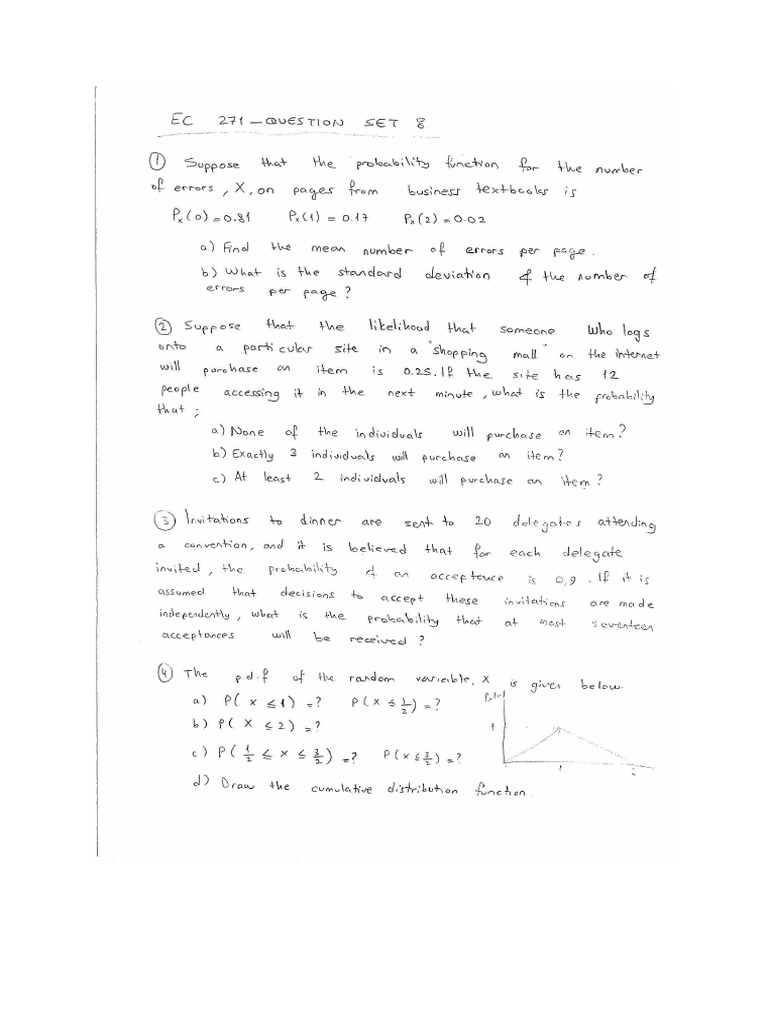 EC 271 - QUESTION SET 8
① Suppose that the probability function for the number
of errors, X, on pages from business textbooks is
Px(0)=0.81 Px(1) = 0.17 Px(2)=0.02
a) Find the mean number of errors per page.
b) What is the standard deviation of the number of
errors per page?
② Suppose that the likelihood that someone who logs
onto a particular site in a "shopping mall" on the internet
will purchase an item is 0.25. If the site has 12
people accessing it in the next minute, what is the probability
that;
a) None of the individuals will purchase an item?
b) Exactly 3 individuals will purchase an item?
c) At least 2 individuals will purchase an item?
③ Invitations to dinner are sent to 20 delegates attending
a convention, and it is believed that for each delegate
invited, the probability of an acceptence is 0,9. If it is
assumed that decisions to accept these invitations are made
independently, what is the probability that at most seventeen
acceptances will be received?
④ The p.d.f of the random variable X is given below.
a) P( X ≤ 1) = ? P(X ≤ 1/2) = ?
b) P( X ≤ 2) = ?
c) P( 1/2 ≤ X ≤ 3/2) = ? P(X ≤ 3/2) = ?
d) Draw the cumulative distribution function
1
1
2